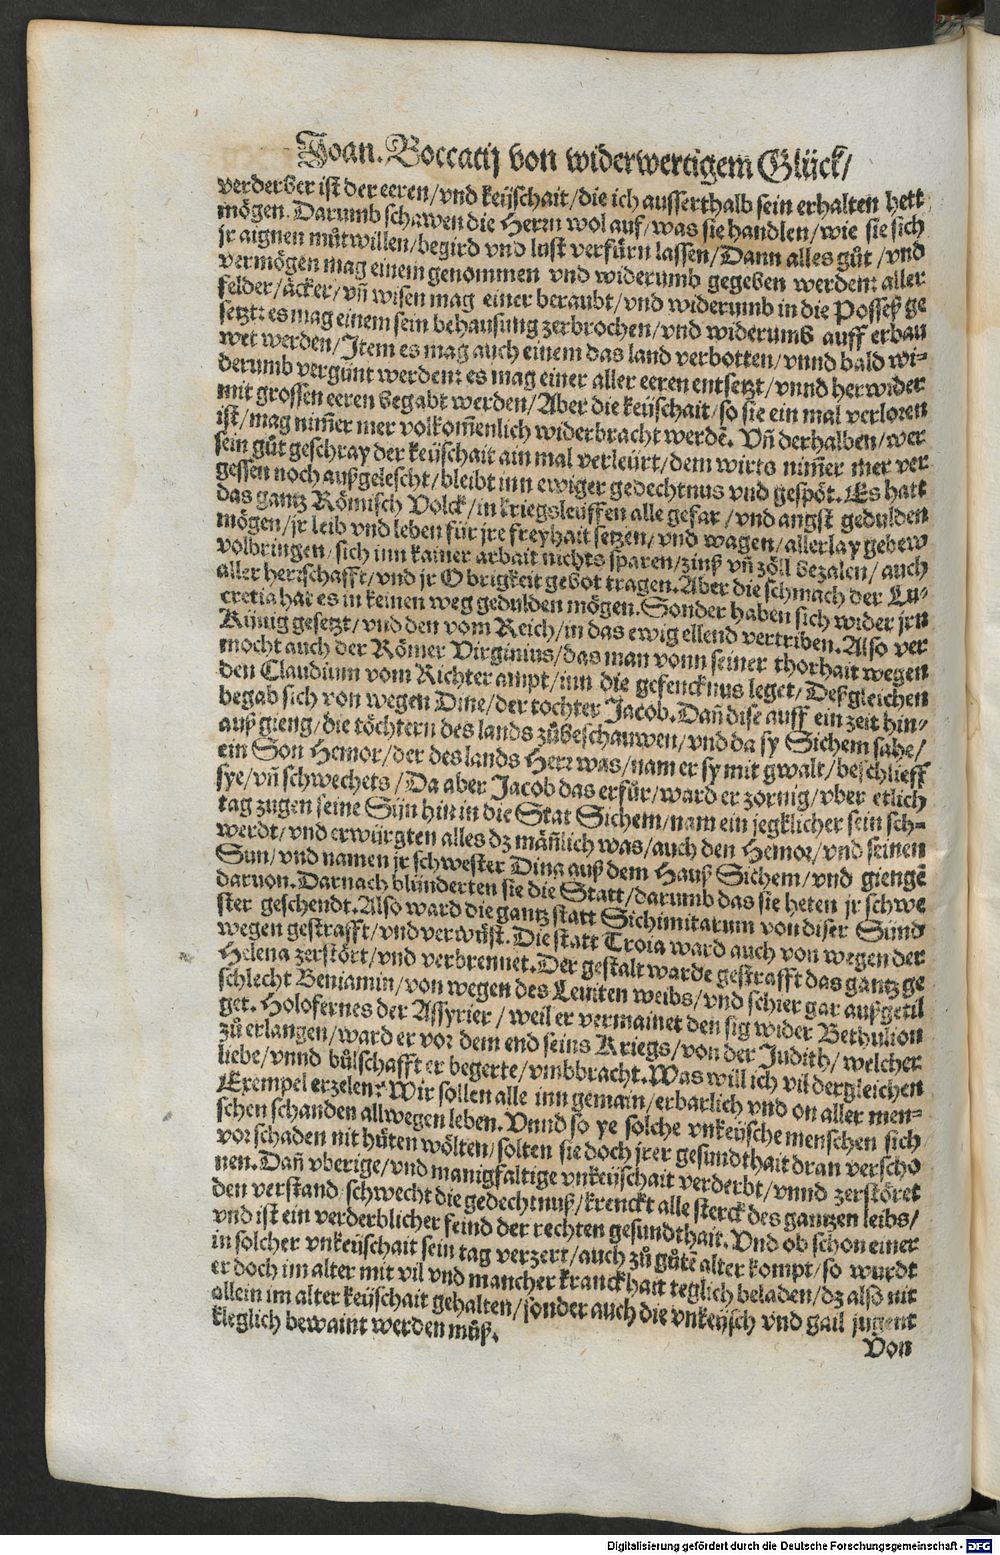 Joan. Boccatij von widerwertigem Glück/
verderber ist der eeren/vnd keüschait/die ich ausserthalb sein erhalten hett
mögen. Darumb schawen die Herrn wol auf/was sie handlen/wie sie sich
jr aignen můtwillen/begird vnd lust verfürn lassen/Dann alles gůt/vnd
vermögen mag einem genommen vnd widerumb gegeben werden: aller
felder/äcker/vñ wisen mag einer beraubt/vnd widerumb in die Possess ge
setzt: es mag einem sein behausung zerbrochen/vnd widerumb auff erbau
wet werden/Item es mag auch einem das land verbotten/vnnd bald wi-
derumb vergünt werden: es mag einer aller eeren entsetzt/vnnd herwider
mit grossen eeren begabt werden/Aber die keüschait/so sie ein mal verloren
ist/mag nim̃er mer volkom̃enlich widerbracht werdẽ. Vñ derhalben/wer
sein gůt geschray der keüschait ain mal verleürt/dem wirts nim̃er mer ver
gessen noch außgelescht/bleibt inn ewiger gedechtnus vnd gespöt. Es hatt
das gantz Römisch Volck/in kriegsleüffen alle gefar/vnd angst gedulden
mögen/jr leib vnd leben für jre freyhait setzen/vnd wagen/allerlay gebew
volbringen/sich inn kainer arbait nichts sparen/zinß vñ zöll bezalen/auch
aller herrschafft/vnd jr Obrigkeit gebot tragen. Aber die schmach der Lu-
cretia hat es in keinen weg gedulden mögen. Sonder haben sich wider jrn
Künig gesetzt/vnd den vom Reich/in das ewig ellend vertriben. Also ver
mocht auch der Römer Virginius/das man vonn seiner thorhait wegen
den Claudium vom Richter ampt/inn die gefencknus leget/Deßgleichen
begab sich von wegen Dine/der tochter Jacob. Dañ dise auff ein zeit hin-
auß gieng/die töchtern des lands zůbeschauwen/vnd da sy Sichem sahe/
ein Son Hemor/der des lands Herr was/nam er sy mit gwalt/beschlieff
sye/vñ schwechets/Da aber Jacob das erfůr/ward er zornig/vber etlich
tag zugen seine Sün hin in die Stat Sichem/nam ein jegklicher sein sch-
werdt/vnd erwürgten alles dz mäñlich was/auch den Hemor/vnd seinen
Sun/vnd namen jr schwester Dina auß dem Hauß Sichem/vnd giengẽ
daruon. Darnach blünderten sie die Statt/darumb das sie heten jr schwe
ster geschendt. Also ward die gantz statt Sichimitarum von diser Sünd
wegen gestrafft/vnd verwüst. Die statt Troia ward auch von wegen der
Helena zerstört/vnd verbrennet. Der gestalt warde gestrafft das gantz ge
schlecht Beniamin/von wegen des Leuiten weibs/vnd schier gar außgetil
get. Holofernes der Assyrier/weil er vermainet den sig wider Bethulion
zů erlangen/ward er vor dem end seins Kriegs/von der Judith/welcher
liebe/vnnd bůlschafft er begerte/vmbbracht. Was will ich vil dergleichen
Exempel erzelen? Wir sollen alle inn gemain/erbarlich vnd on aller men-
schen schanden allwegen leben. Vnnd so ye solche vnkeüsche menschen sich
vor schaden nit hüten wölten/solten sie doch jrer gesundthait dran verscho
nen. Dañ vberige/vnd manigfaltige vnkeüschait verderbt/vnnd zerstöret
den verstand/schwecht die gedechtnuß/krenckt alle sterck des gantzen leibs/
vnd ist ein verderblicher feind der rechten gesundthait. Vnd ob schon einer
in solcher vnkeüschait sein tag verzert/auch zů gůtẽ alter kompt/so wurdt
er doch im alter mit vil vnd mancher kranckhait teglich beladen/dz alßo nit
allein im alter keüschait gehalten/sonder auch die vnkeüsch vnd gail jugent
kleglich bewaint werden můß.
Von
Digitalisierung gefördert durch die Deutsche Forschungsgemeinschaft - DFG